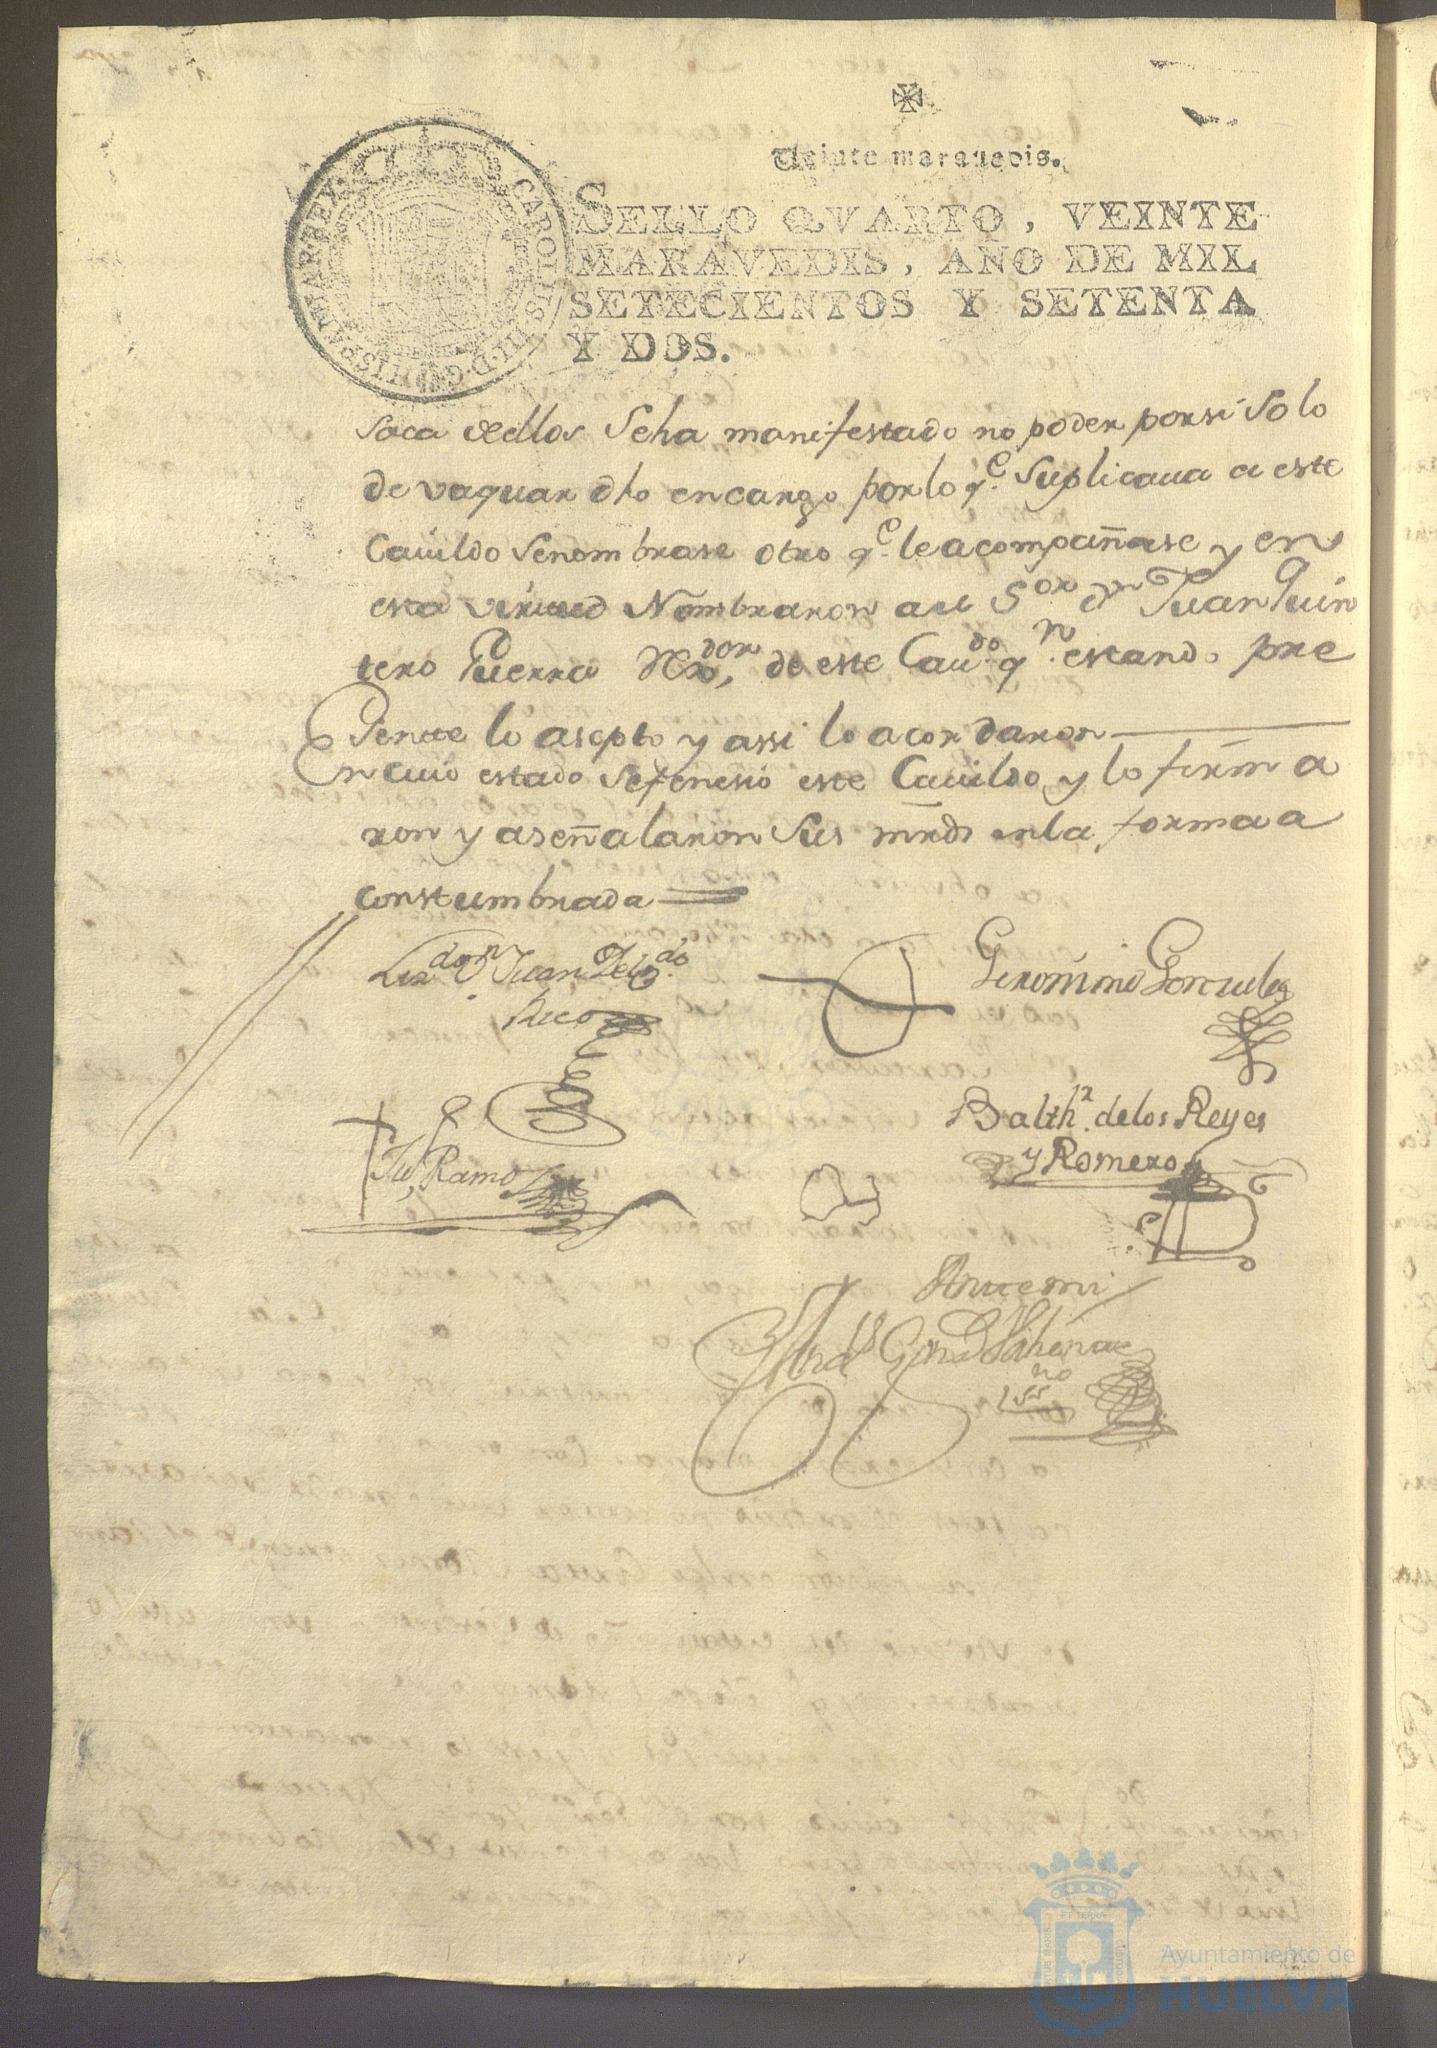 Veinte marauedis.
CAROLUS III D G HISPANIAR REX
SELLO QVARTO, VEINTE
MARAVEDIS, AÑO DE MIL
SETECIENTOS Y SETENTA
Y DOS.
saca dellos Seha manifestado no poder porsi Solo
de vaquar dho encargo porlo qe Suplicaua a este
Cauildo Senombrase otro qe leacompañase y en
esta virtud Nombraron a el Sor dn Juan Quin
tero Guerra Rexdor, de este Caudo qn estando pre
sente lo asepto y assi lo acordaron
En cuio estado Sefenesio este Cauildo y lo firma
ron y aseñalaron Sus mrds enla forma a
constumbrada
Lizdo Dn Juan
Rico
Geronimo Gonzales
Balthr delos Reyes
y Romero
Ju Ramos
Antemi
Ayuntamiento de
HUELVA